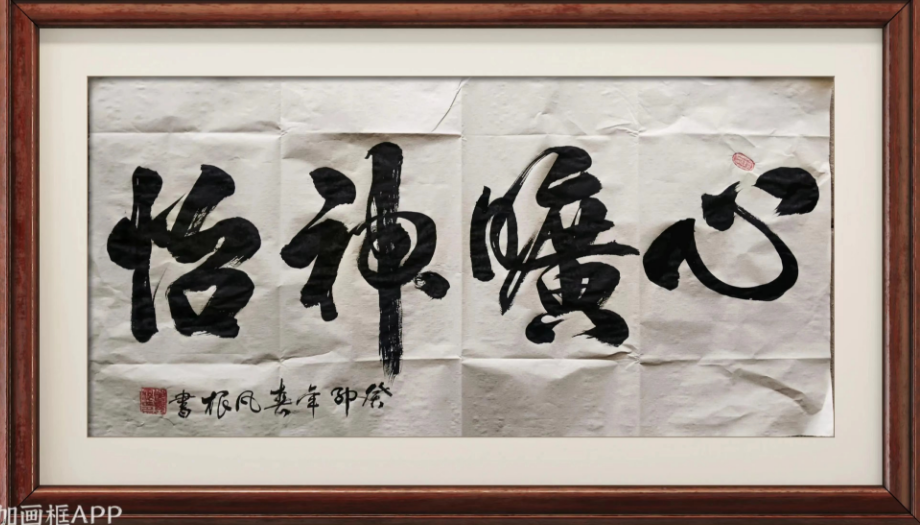 心曠神怡
癸卯年春风根書
加画框APP